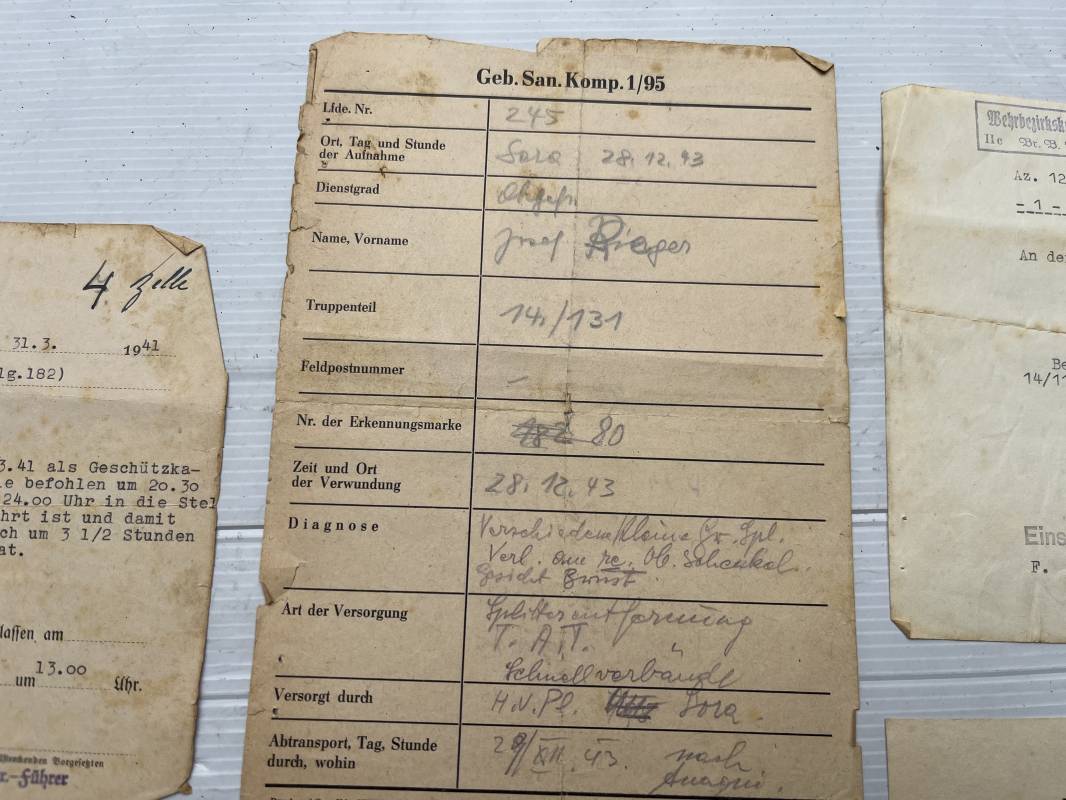 4 Zelle
31.3. 1941
lg.182)
3.41 als Geschützka-
e befohlen um 20.30
24.00 Uhr in die Stel
hrt ist und damit
ch um 3 1/2 Stunden
at.
lassen am
um 13.00 Uhr.
Vorgesetzten
r.-Führer
Geb. San. Komp. 1/95
Lfde. Nr. 245
Ort, Tag und Stunde
der Aufnahme Sora 28.12.43
Dienstgrad Obgefr.
Name, Vorname Josef Rieger
Truppenteil 14./131
Feldpostnummer –
Nr. der Erkennungsmarke 80
Zeit und Ort
der Verwundung 28.12.43
Diagnose Verschiedene kleine Gr. Spl.
Verl. am re. Ob. Schenkel.
Gesicht Brust.
Art der Versorgung Splitterentfernung
T. A. T.
Schnellverbände
Versorgt durch H.V.Pl. Sora.
Abtransport, Tag, Stunde
durch, wohin 29/XII.43. nach
Anagni.
Wehrbezirksk
IIc Br. B.
Az. 12
- 1 -
An de
Be
14/1
Eins
F.